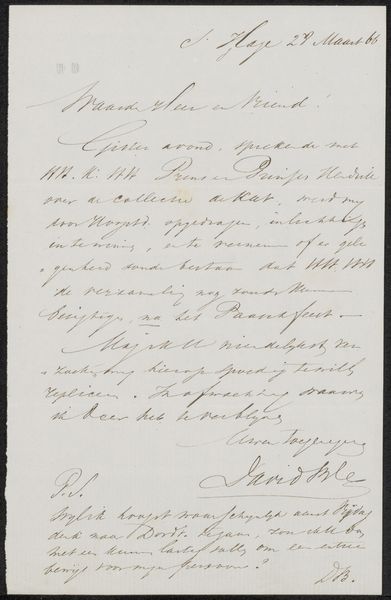 s' Hage 28 Maart 66
Waarde Heer en Vriend!
Gister avond, sprekende met
HH. K. HH Prins en Prinses Hendrik
over de collectie de Kat, werd my
door opgedragen, inlichtingen
in te winnen, en te vernemen of er gele
genheid zoude bestaan dat HH. HH
de verzameling nog zouden kunnen
bezigtigen, na het Paaschfeest.
Mag ik U vriendelyk ver
zoeken my hierop spoedig te willen
repliceren. In afwachting waarvan
ik de eer heb te verblyven
Uwen Toegenegen
David Bles
P.S.
Wyl ik hoogst waarschynlyk aanst Vrydag
denk naar Dordt te gaan, zou
met een kunnen om een entree
bewys voor myn persoon?
DB.